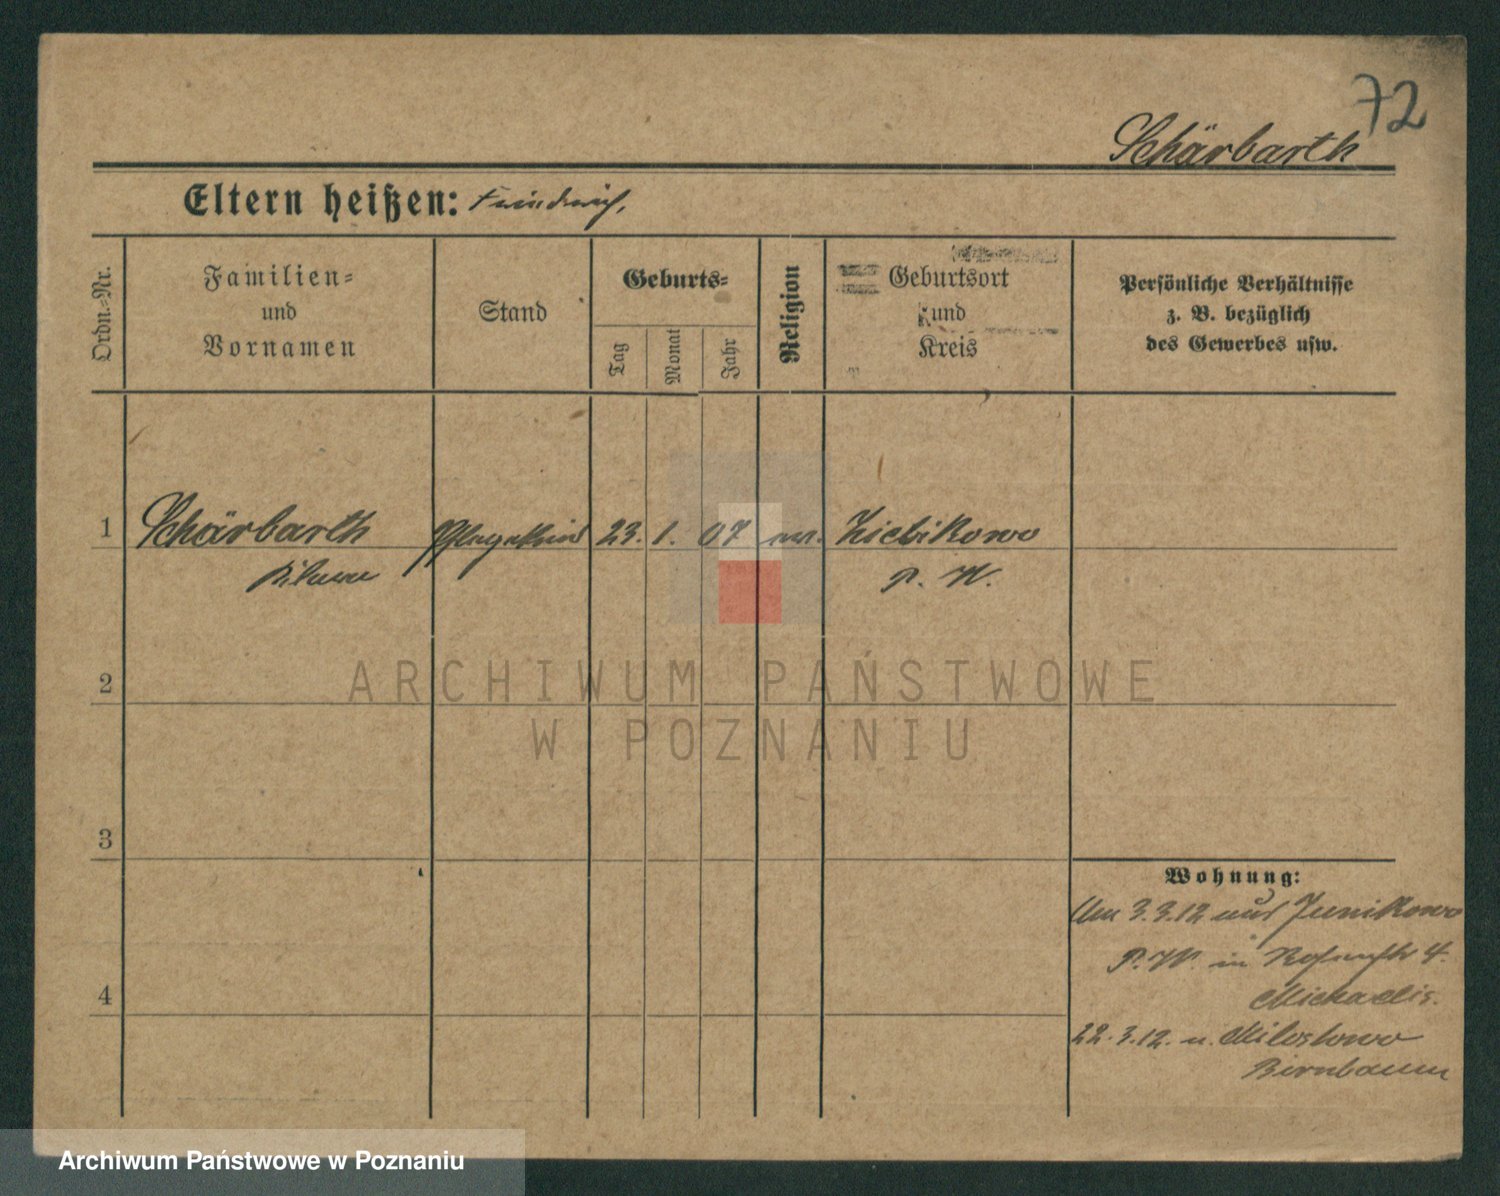 72
Schärbarth
Eltern heißen: Friedrich,
Ordn.-Nr.
Familien-
und
Vornamen
Stand
Geburts-
Tag
Monat
Jahr
Religion
Geburtsort
und
Kreis
Persönliche Verhältnisse
z. B. bezüglich
des Gewerbes usw.
1 Schärbarth Pflegekind 23. 1. 07 ev. Zichikowo
P. W.
2
ARCHIWUM PAŃSTWOWE
W POZNANIU
3
Wohnung:
Am 3.3.12 aus Junikowo
P. W. in 4.
4
Michaelis.
22.3.12. n. Milostowo
Birnbaum
Archiwum Państwowe w Poznaniu